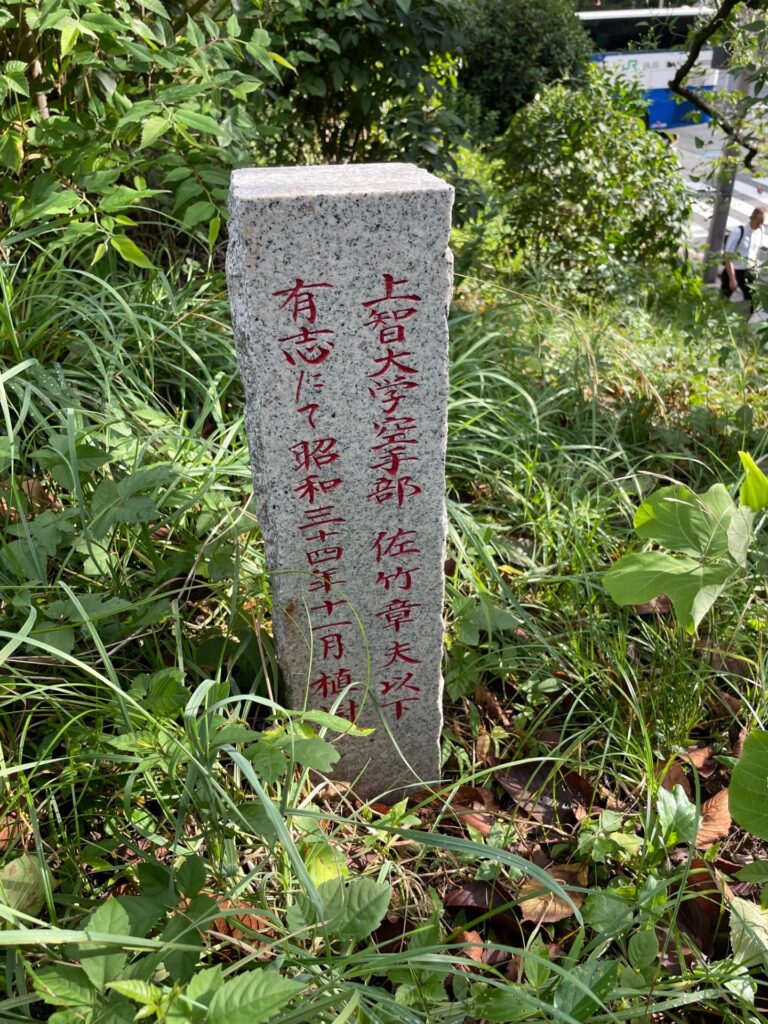 上智大学空手部 佐竹章夫以下
有志にて昭和三十四年十一月植
JR BUS